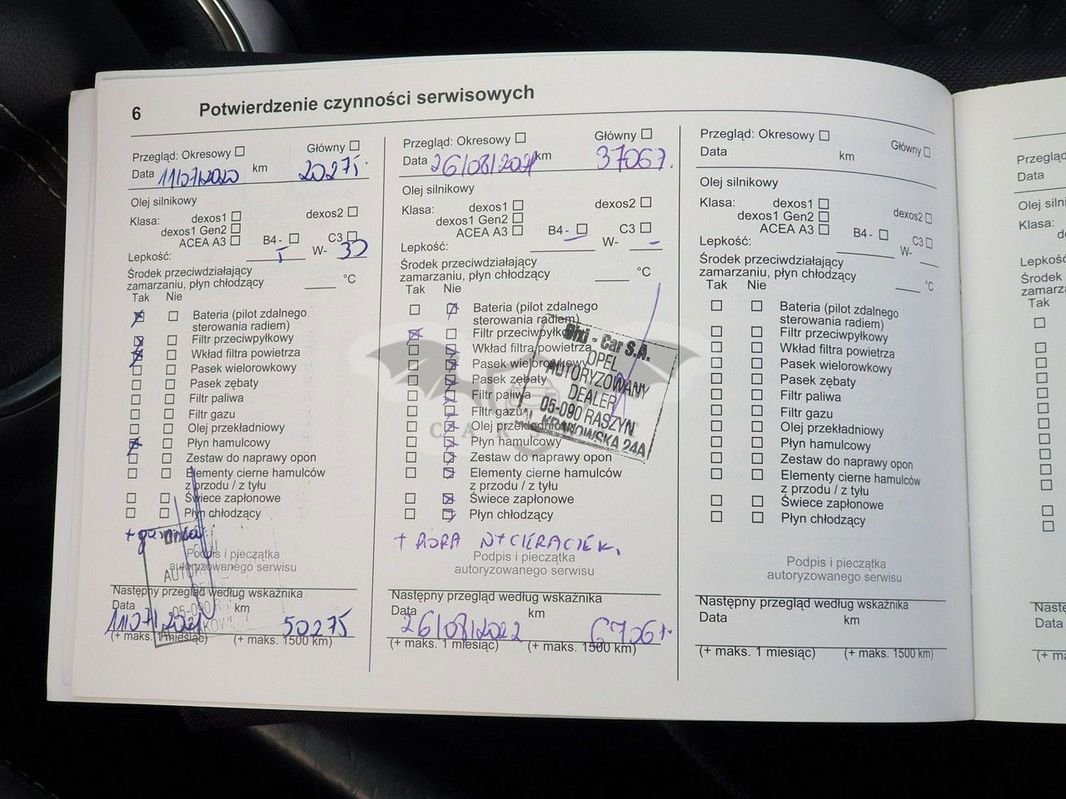 6 Potwierdzenie czynności serwisowych
Przegląd: Okresowy Główny
Data 11/07/2020 km 20275
Olej silnikowy
Klasa: dexos1 dexos2
dexos1 Gen2
ACEA A3 B4 - C3
Lepkość: 5 W- 30
Środek przeciwdziałający
zamarzaniu, płyn chłodzący °C
Tak Nie
Bateria (pilot zdalnego
sterowania radiem)
Filtr przeciwpyłkowy
Wkład filtra powietrza
Pasek wielorowkowy
Pasek zębaty
Filtr paliwa
Filtr gazu
Olej przekładniowy
Płyn hamulcowy
Zestaw do naprawy opon
Elementy cierne hamulców
z przodu / z tyłu
Świece zapłonowe
Płyn chłodzący
Podpis i pieczątka
autoryzowanego serwisu
Następny przegląd według wskaźnika
Data km
11/07/2021 50275
(+ maks. 1 miesiąc) (+ maks. 1500 km)
Przegląd: Okresowy Główny
Data 26/08/2021 km 37067
Olej silnikowy
Klasa: dexos1 dexos2
dexos1 Gen2
ACEA A3 B4 - C3
Lepkość: - W- -
Środek przeciwdziałający
zamarzaniu, płyn chłodzący °C
Tak Nie
Bateria (pilot zdalnego
sterowania radiem)
Filtr przeciwpyłkowy
Wkład filtra powietrza
Pasek wielorowkowy
Pasek zębaty
Filtr paliwa
Filtr gazu
Olej przekładniowy
Płyn hamulcowy
Zestaw do naprawy opon
Elementy cierne hamulców
z przodu / z tyłu
Świece zapłonowe
Płyn chłodzący
Dixi - Car S.A.
OPEL
AUTORYZOWANY
DEALER
05-090 RASZYN
KRAKOWSKA 24A
+ PIÓRA WYCIERACZEK
Podpis i pieczątka
autoryzowanego serwisu
Następny przegląd według wskaźnika
Data km
26/08/2022 67067
(+ maks. 1 miesiąc) (+ maks. 1500 km)
Przegląd: Okresowy Główny
Data km
Olej silnikowy
Klasa: dexos1 dexos2
dexos1 Gen2
ACEA A3 B4 - C3
Lepkość: W-
Środek przeciwdziałający
zamarzaniu, płyn chłodzący °C
Tak Nie
Bateria (pilot zdalnego
sterowania radiem)
Filtr przeciwpyłkowy
Wkład filtra powietrza
Pasek wielorowkowy
Pasek zębaty
Filtr paliwa
Filtr gazu
Olej przekładniowy
Płyn hamulcowy
Zestaw do naprawy opon
Elementy cierne hamulców
z przodu / z tyłu
Świece zapłonowe
Płyn chłodzący
Podpis i pieczątka
autoryzowanego serwisu
Następny przegląd według wskaźnika
Data km
(+ maks. 1 miesiąc) (+ maks. 1500 km)
Data
Olej
Klasa:
Środek
Tak
Data